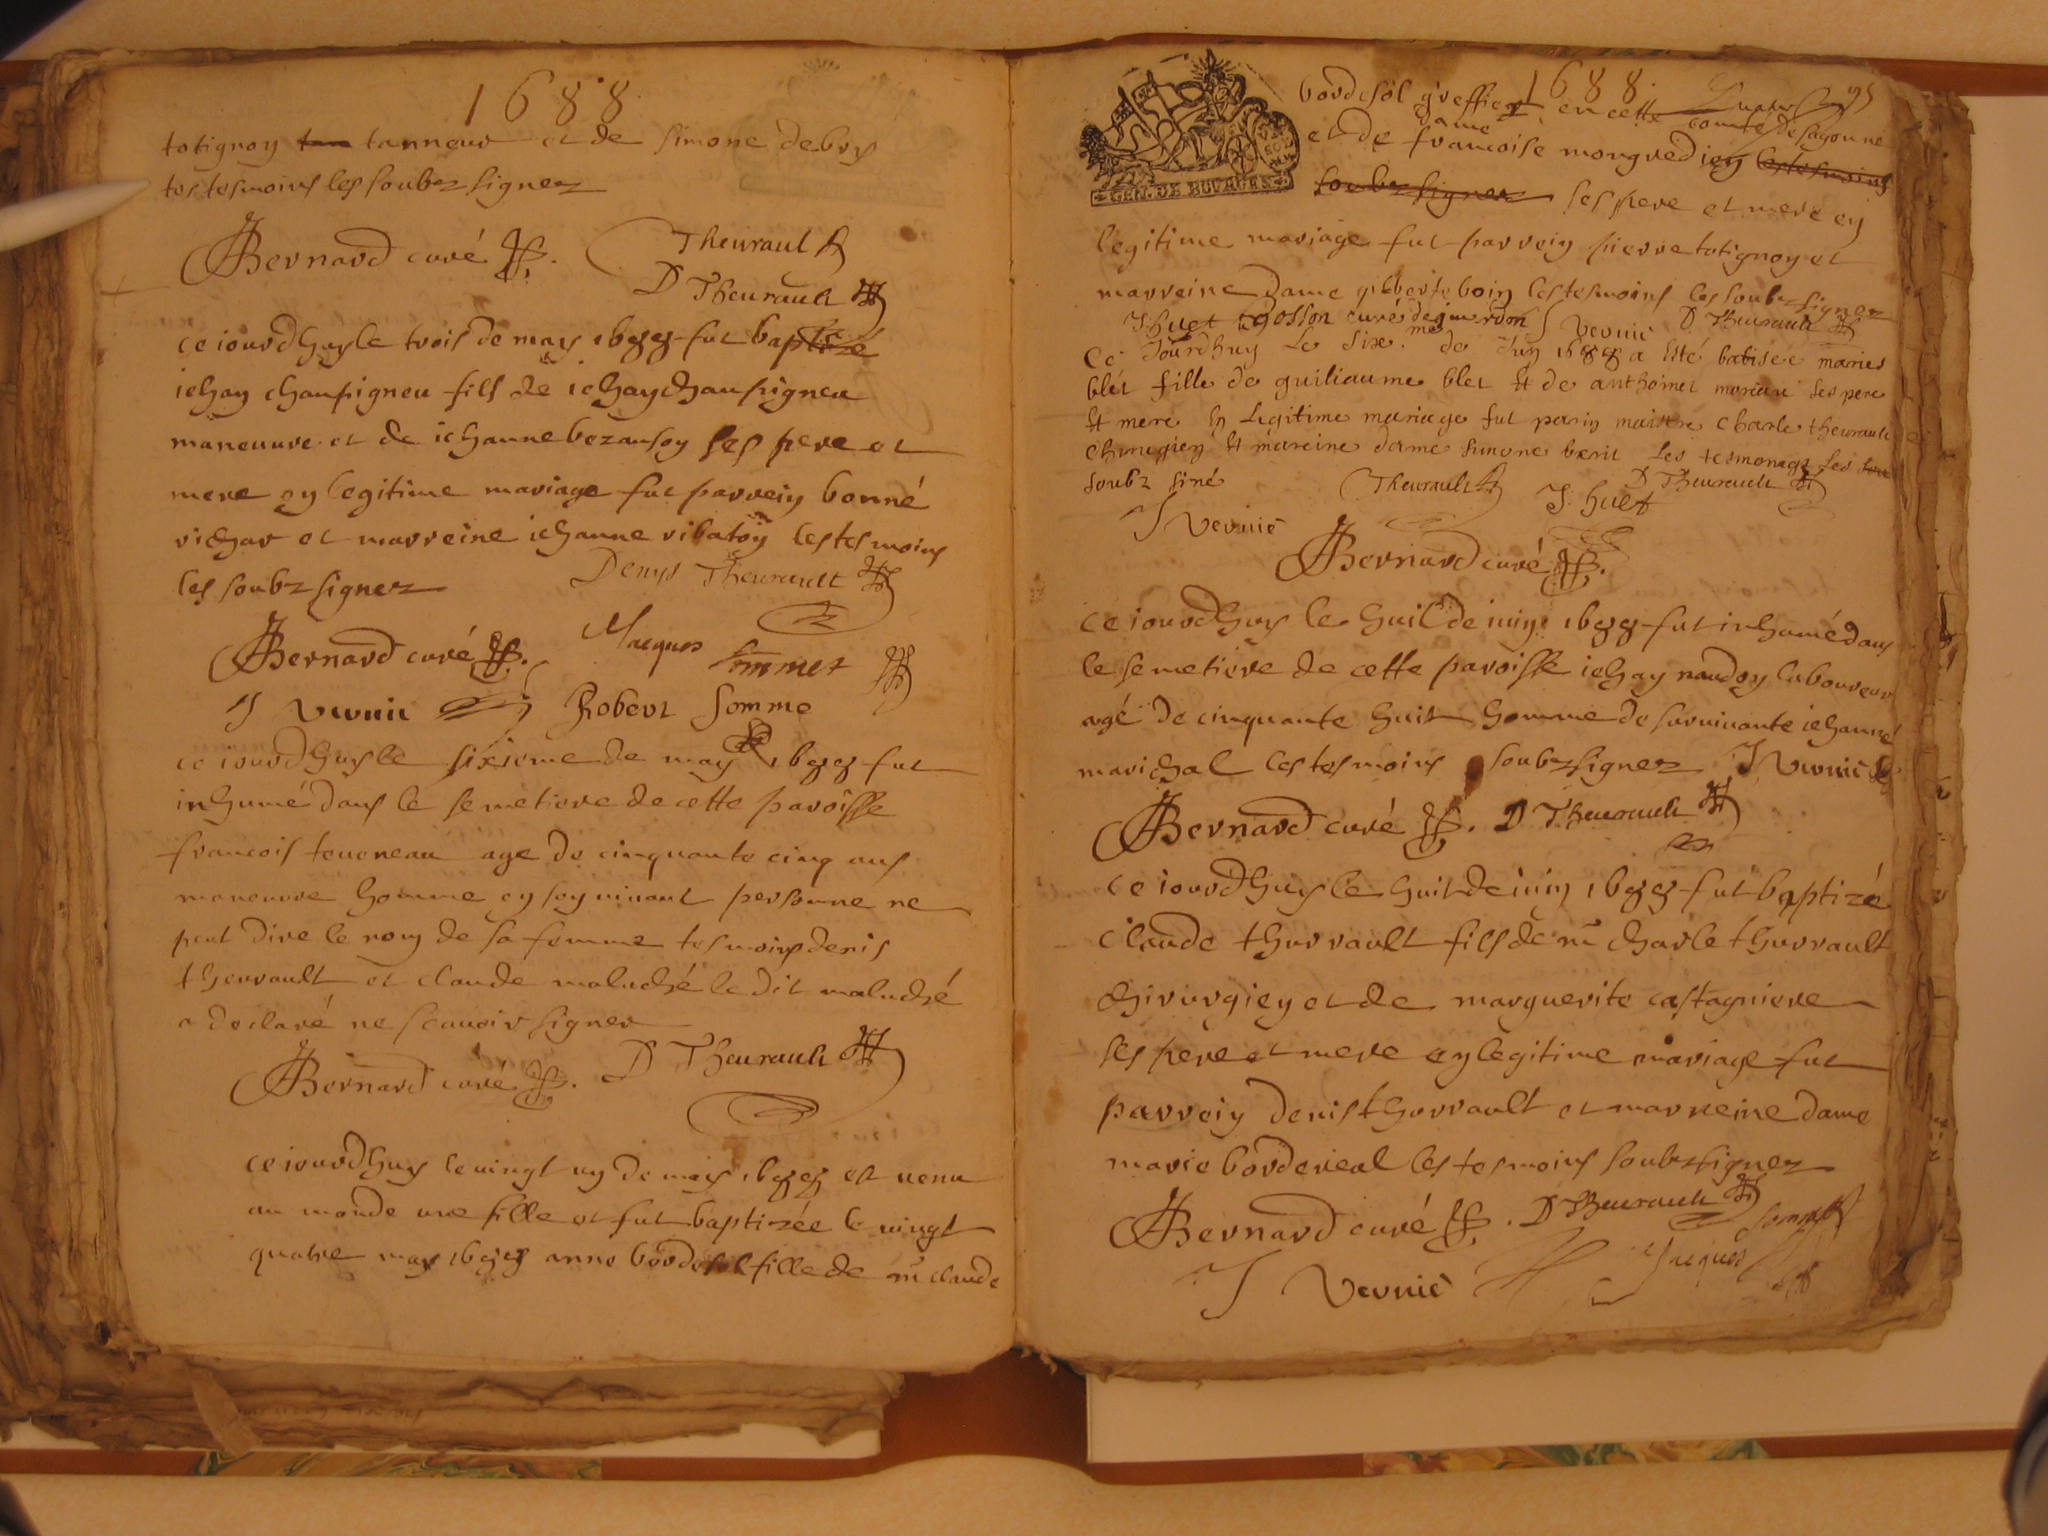 1688
totignoy tanneur et de simone debry
testesmoins les soubz signez
Bernard curé
Theurault
D Theurault
ce iourdhuy le trois de may 1688 fut baptizé
iehan champigneu fils de iehan champigneu
maneuvre et de iehanne bezanson ses pere et
mere en legitime mariage fut parrein bonné
richar et marreine iehanne ribaton les tesmoins
les soubz signez
Denys Theurault
Bernard curé
Jacques Sommer
J Vernie
Robert Somme
ce iourdhuy le sixieme de may 1688 fut
inhumé dans le semetiere de cette paroisse
francois teuneau age de cinquante cinq ans
maneuvre homme en son vivant personne ne
peut dire le nom de sa femme tesmoins denis
theurault et claude maluché le dit maluché
a declaré ne scauoir signer
Bernard curé
D Theurault
ce iourdhuy le vingt un de may 1688 est venu
au monde une fille et fut baptizée le vingt
quatre may 1688 anne bordesol fille de m claude
1688
95
bordesol greffier en cette comté de sagonne
et de dame francoise mongredien les tesmoins
soubz signez ses pere et mere en
legitime mariage fut parrein pierre totignoy et
marreine dame gilberte boin les tesmoins les soubz signez
J huet
Gosson curé
J Vernie
D Theurault
Ce Jourdhuy Le sixe.me de Juin 1688 a Esté batisée maries
blét fille de guiliaume blet Et de anthoinet moriau ses pere
Et mere En Legitime mariage fut parin maistre Charle theurault
Chirugien Et mareine dame simone berit Les tesmoneage les
soubz siné
Theurault
J. huet
D Theurault
J Vernie
Bernard curé
ce iourdhuy le huit de iuin 1688 fut inhumé dans
le semetiere de cette paroisse iehan naudoy laboureur
agé de cinquante huit homme de survivante iehanne
marichal les tesmoins soubz signez
J Vernie
Bernard curé
D Theurault
ce iourdhuy le huit de iuin 1688 fut baptizé
claude thurrault fils de m charle thurrault
chirurgien et de marguerite castagniere
ses pere et mere en legitime mariage fut
parrein denis thurrault et marreine dame
marie bordereal les tesmoins soubz signez
Bernard curé
D Theurault
Jacques Sommer
J Vernie